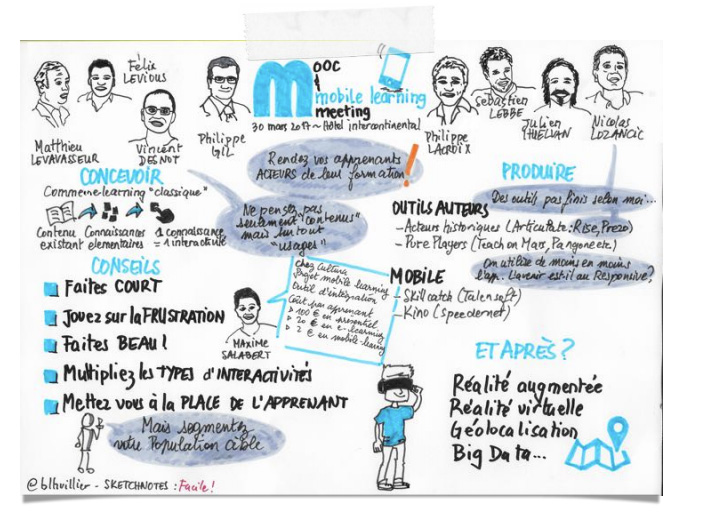 Félix
LEVIOUS
Matthieu
LEVAVASSEUR
Vincent
DESNOT
Philippe
GIL
MOOC
&
mobile learning
meeting
30 mars 2017 ~ Hôtel intercontinental
Philippe
LACROIX
Sébastien
LEBBE
Julien
Nicolas
CONCEVOIR
Comme e-learning "classique"
Contenu
existant
Connaissances
elementaires
1 connaissance
= 1 interactivité
Rendez vos apprenants
ACTEURS de leur formation!
Ne pensez pas
seulement "contenus"
mais surtout
"usages"
CONSEILS
Faites COURT
Jouez sur la FRUSTRATION
Faites BEAU!
Multipliez les TYPES d'INTERACTIVITÉS
Mettez vous à la PLACE DE L'APPRENANT
Mais segmentez
votre Population cible
MAXIME
SALABERT
chez Cultura
Projet mobile learning
Outil d'intégration
Coût par apprenant
> 100 € en présentiel
> 20 € en e-learning
> 2 € en mobile-learning
PRODUIRE
Des outils pas finis selon moi...
OUTILS AUTEURS
- Acteurs historiques (Articulate: Rise, Prezo)
- Pure Players (Teach on Mars, Pangone etc.)
On utilise de moins en moins
l'app. L'avenir est-il au Responsive?
MOBILE
- Skillcatch (Talensoft)
- Kino (Speedernet)
ET APRÈS?
Réalité augmentée
Réalité virtuelle
Géolocalisation
Big Data...
@blhvillier - SKETCHNOTES: Facile!